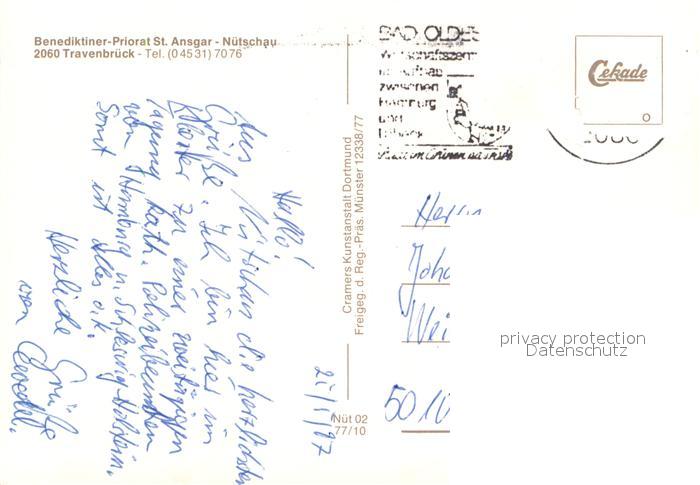 Benediktiner-Priorat St. Ansgar - Nütschau
2060 Travenbrück - Tel. (04531) 7076
BAD OLDES
Wirtschaftszentrum
im Aufbau
zwischen
Hamburg
und
Lübeck
Cekade
Cramers Kunstanstalt Dortmund
Freigeg. d. Reg.-Präs. Münster 12338/77
Nüt 02
77/10
25/1/87
Hallo!
Aus Nütschau die herzlichsten
Grüße. Ich bin hier im
Kloster zu einer zweitägigen
Tagung kath. Polizeibeamten
von Hamburg u. Schleswig-Holstein.
Sonst ist alles o.k.
Herzliche Grüße
von
Herrn
Joha
Wei
5010
privacy protection
Datenschutz